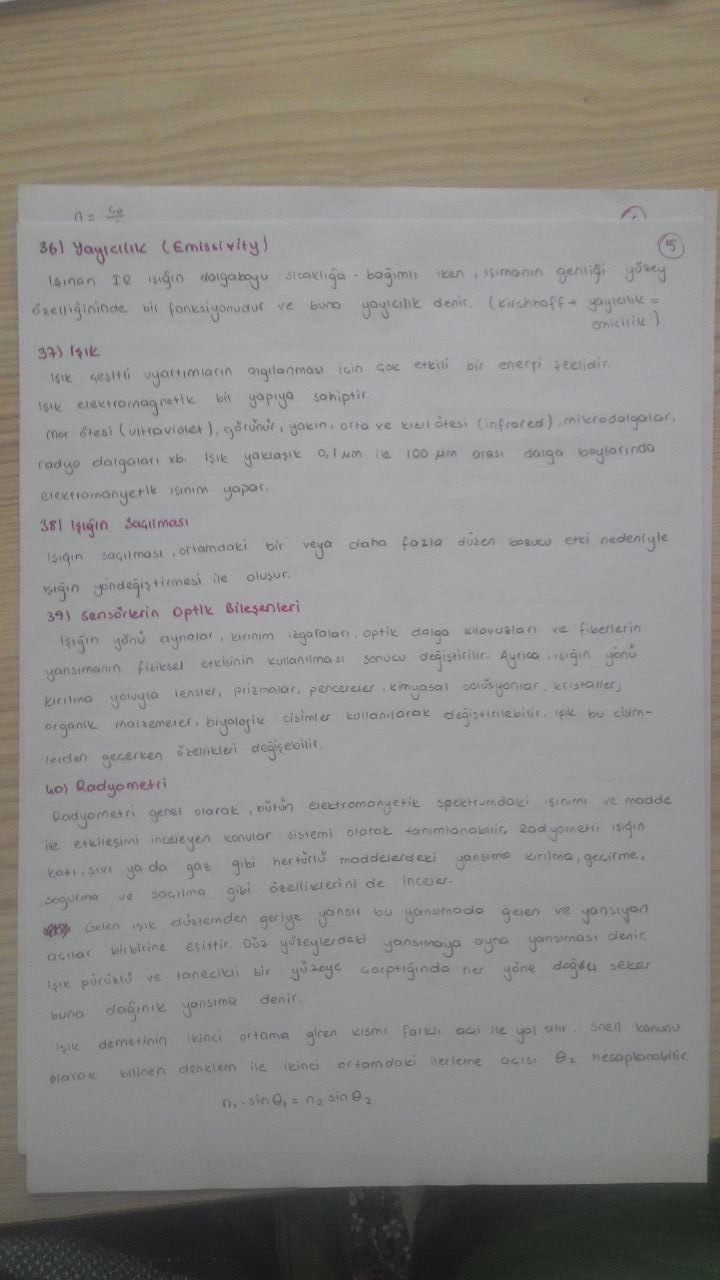 n = c₀
5
36) Yayıcılık (Emissivity)
Işınan IR ışığın dalgaboyu sıcaklığa - bağımlı iken, ışımanın genliği yüzey
özelliğininde bir fonksiyonudur ve buna yayıcılık denir. (Kirchhoff → yayıcılık =
emicilik)
37) Işık
Işık çeşitli uyartımların algılanması için çok etkili bir enerji şeklidir.
Işık elektromagnetik bir yapıya sahiptir.
Mor ötesi (ultraviolet), görünür, yakın, orta ve kızıl ötesi (infrared), mikrodalgalar,
radyo dalgaları vb. Işık yaklaşık 0,1 μm ile 100 μm arası dalga boylarında
elektromanyetik ışınım yapar.
38) Işığın Saçılması
Işığın saçılması, ortamdaki bir veya daha fazla düzen bozucu etki nedeniyle
ışığın yöndeğiştirmesi ile oluşur.
39) Sensörlerin Optik Bileşenleri
Işığın yönü aynalar, kırınım ızgaraları, optik dalga kılavuzları ve fiberlerin
yansımanın fiziksel etkisinin kullanılması sonucu değiştirilir. Ayrıca, ışığın yönü
kırılma yoluyla lensler, prizmalar, pencereler, kimyasal solüsyonlar, kristaller,
organik malzemeler, biyolojik cisimler kullanılarak değiştirilebilir. Işık bu cisim-
lerden geçerken özellikleri değişebilir.
40) Radyometri
Radyometri genel olarak, bütün elektromanyetik spektrumdaki ışınımı ve madde
ile etkileşimi inceleyen konular sistemi olarak tanımlanabilir. Radyometri ışığın
katı, sıvı ya da gaz gibi hertürlü maddelerdeki yansıma kırılma, geçirme,
soğurma ve saçılma gibi özelliklerini de inceler.
Gelen ışık düzlemden geriye yansır bu yansımada gelen ve yansıyan
açılar birbirine eşittir. Düz yüzeylerdeki yansımaya ayna yansıması denir
Işık pürüzlü ve tanecikli bir yüzeye çarptığında her yöne doğru seker
buna dağınık yansıma denir.
Işık demetinin ikinci ortama giren kısmı farklı açı ile yol alır. Snell kanunu
olarak bilinen denklem ile ikinci ortamdaki ilerleme açısı θ₂ hesaplanabilir
n₁ . sinθ₁ = n₂ sinθ₂